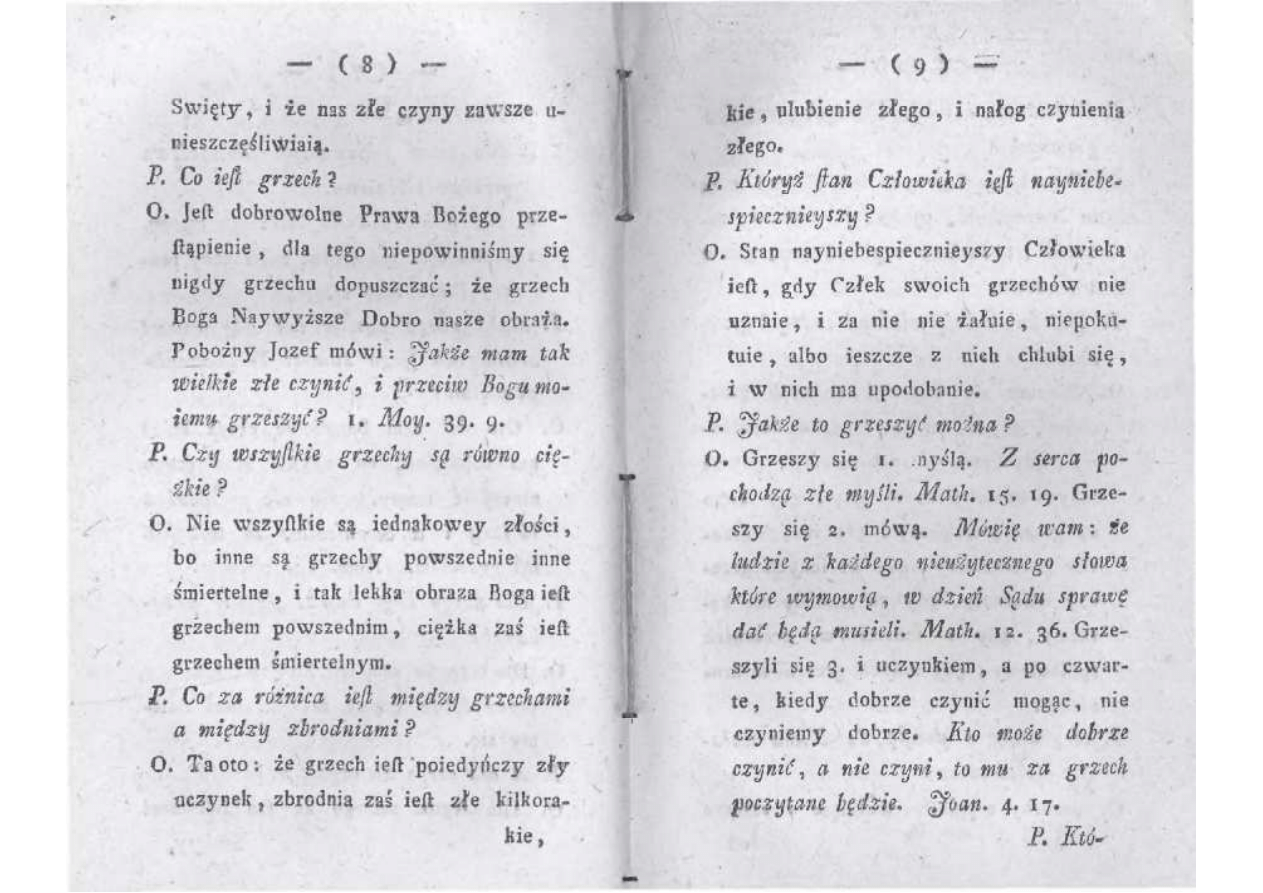 — ( 8 ) —
Swięty, i że nas złe czyny zawsze u-
nieszczęśliwiaią.
P. Co ieſt grzech?
O. Jeſt dobrowolne Prawa Bożego prze-
ſtąpienie, dla tego niepowinniśmy się
nigdy grzechu dopuszczać; że grzech
Boga Naywyższe Dobro nasze obraża.
Pobożny Jozef mówi: Jakże mam tak
wielkie złe czynić, i przeciw Bogu mo-
iemu grzeszyć? 1. Moy. 39. 9.
P. Czy wszyſtkie grzechy są równo cię-
żkie?
O. Nie wszyſtkie są iednakowey złości,
bo inne są grzechy powszednie inne
śmiertelne, i tak lekka obraza Boga ieſt
grzechem powszednim, ciężka zaś ieſt
grzechem śmiertelnym.
P. Co za różnica ieſt między grzechami
a między zbrodniami?
O. Ta oto: że grzech ieſt poiedyńczy zły
uczynek, zbrodnia zaś ieſt złe kilkora-
kie,
— ( 9 ) —
kie, ulubienie złego, i nałog czynienia
złego.
P. Któryż ſtan Człowieka ięſt nayniebe-
spiecznieyszy?
O. Stan nayniebespiecznieyszy Człowieka
ieſt, gdy Człek swoich grzechów nie
uznaie, i za nie nie żałuie, niepoku-
tuie, albo ieszcze z nich chlubi się,
i w nich ma upodobanie.
P. Jakże to grzeszyć można?
O. Grzeszy się 1. myślą. Z serca po-
chodzą złe myśli. Math. 15. 19. Grze-
szy się 2. mówą. Mówię wam: że
ludzie z każdego nieużytecznego słowa
które wymowią, w dzień Sądu sprawę
dać będą musieli. Math. 12. 36. Grze-
szyli się 3. i uczynkiem, a po czwar-
te, kiedy dobrze czynić mogąc, nie
czyniemy dobrze. Kto może dobrze
czynić, a nie czyni, to mu za grzech
poczytane będzie. Joan. 4. 17.
P. Któ-